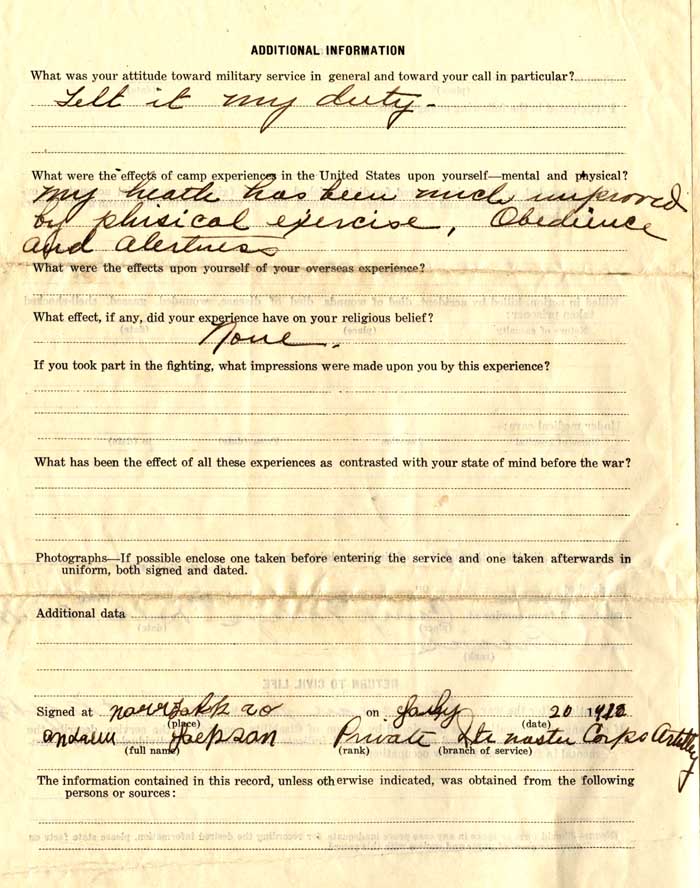 ADDITIONAL INFORMATION
What was your attitude toward military service in general and toward your call in particular?
Felt it my duty.
What were the effects of camp experiences in the United States upon yourself—mental and physical?
My heath has been much improved
by phisical exercise, Obedience
and alertness
What were the effects upon yourself of your overseas experience?
What effect, if any, did your experience have on your religious belief?
None.
If you took part in the fighting, what impressions were made upon you by this experience?
What has been the effect of all these experiences as contrasted with your state of mind before the war?
Photographs—If possible enclose one taken before entering the service and one taken afterwards in
uniform, both signed and dated.
Additional data
Signed at on 20
(place) (date)
andrew Private master Corps
(full name) (rank) (branch of service)
The information contained in this record, unless otherwise indicated, was obtained from the following
persons or sources:
RETURN TO CIVIL LIFE